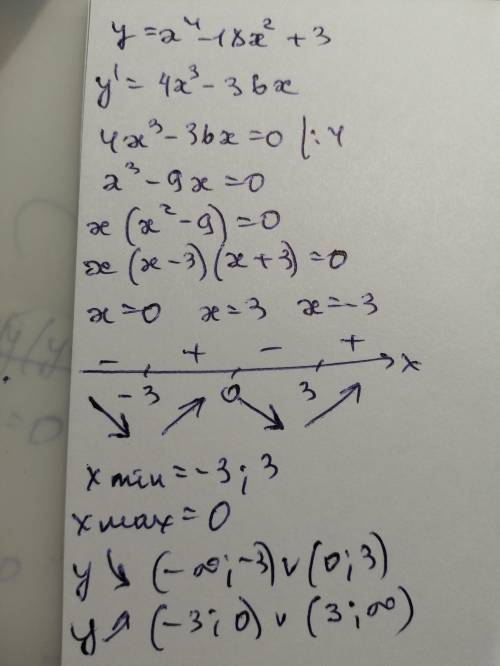 y = x⁴ - 18x² + 3
y' = 4x³ - 36x
4x³ - 36x = 0 |:4
x³ - 9x = 0
x(x² - 9) = 0
x(x - 3)(x + 3) = 0
x = 0 x = 3 x = -3
- + - +
-3 0 3 x
↘ ↗ ↘ ↗
x min = -3; 3
x max = 0
y ↘ (-∞; -3) ∨ (0; 3)
y ↗ (-3; 0) ∨ (3; ∞)